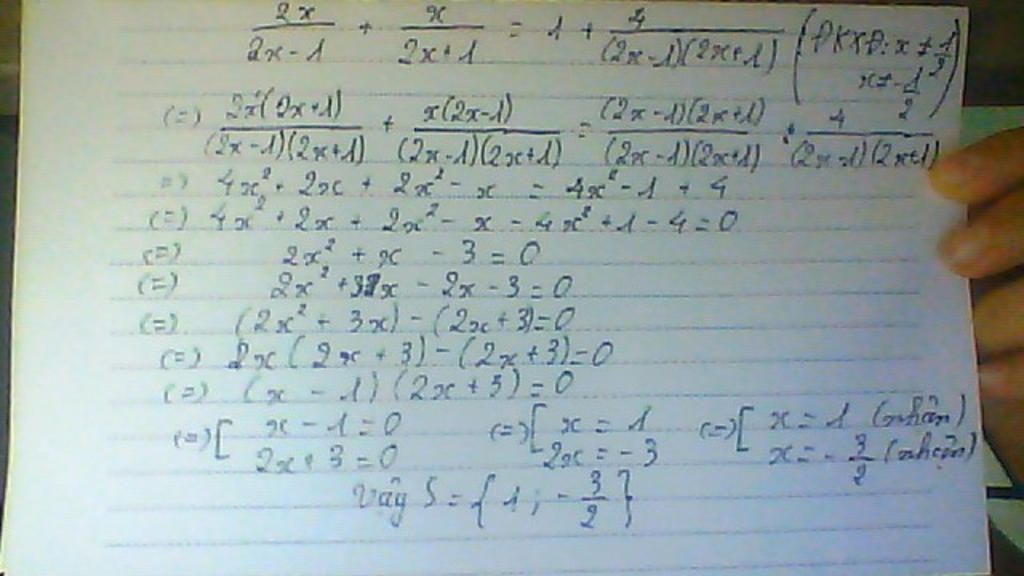 2x/(2x-1) + x/(2x+1) = 1 + 4/((2x-1)(2x+1)) (ĐKXĐ: x ≠ 1/2
x ≠ -1/2)
(=) 2x(2x+1)/((2x-1)(2x+1)) + x(2x-1)/((2x-1)(2x+1)) = (2x-1)(2x+1)/((2x-1)(2x+1)) + 4/((2x-1)(2x+1))
=) 4x² + 2x + 2x² - x = 4x² - 1 + 4
(=) 4x² + 2x + 2x² - x - 4x² + 1 - 4 = 0
(=) 2x² + x - 3 = 0
(=) 2x² + 3x - 2x - 3 = 0
(=) (2x² + 3x) - (2x + 3) = 0
(=) x(2x + 3) - (2x + 3) = 0
(=) (x - 1)(2x + 3) = 0
(=) [ x - 1 = 0 (=) [ x = 1 (=) [ x = 1 (nhận)
2x + 3 = 0 2x = -3 x = -3/2 (nhận)
Vậy S = { 1 ; -3/2 }